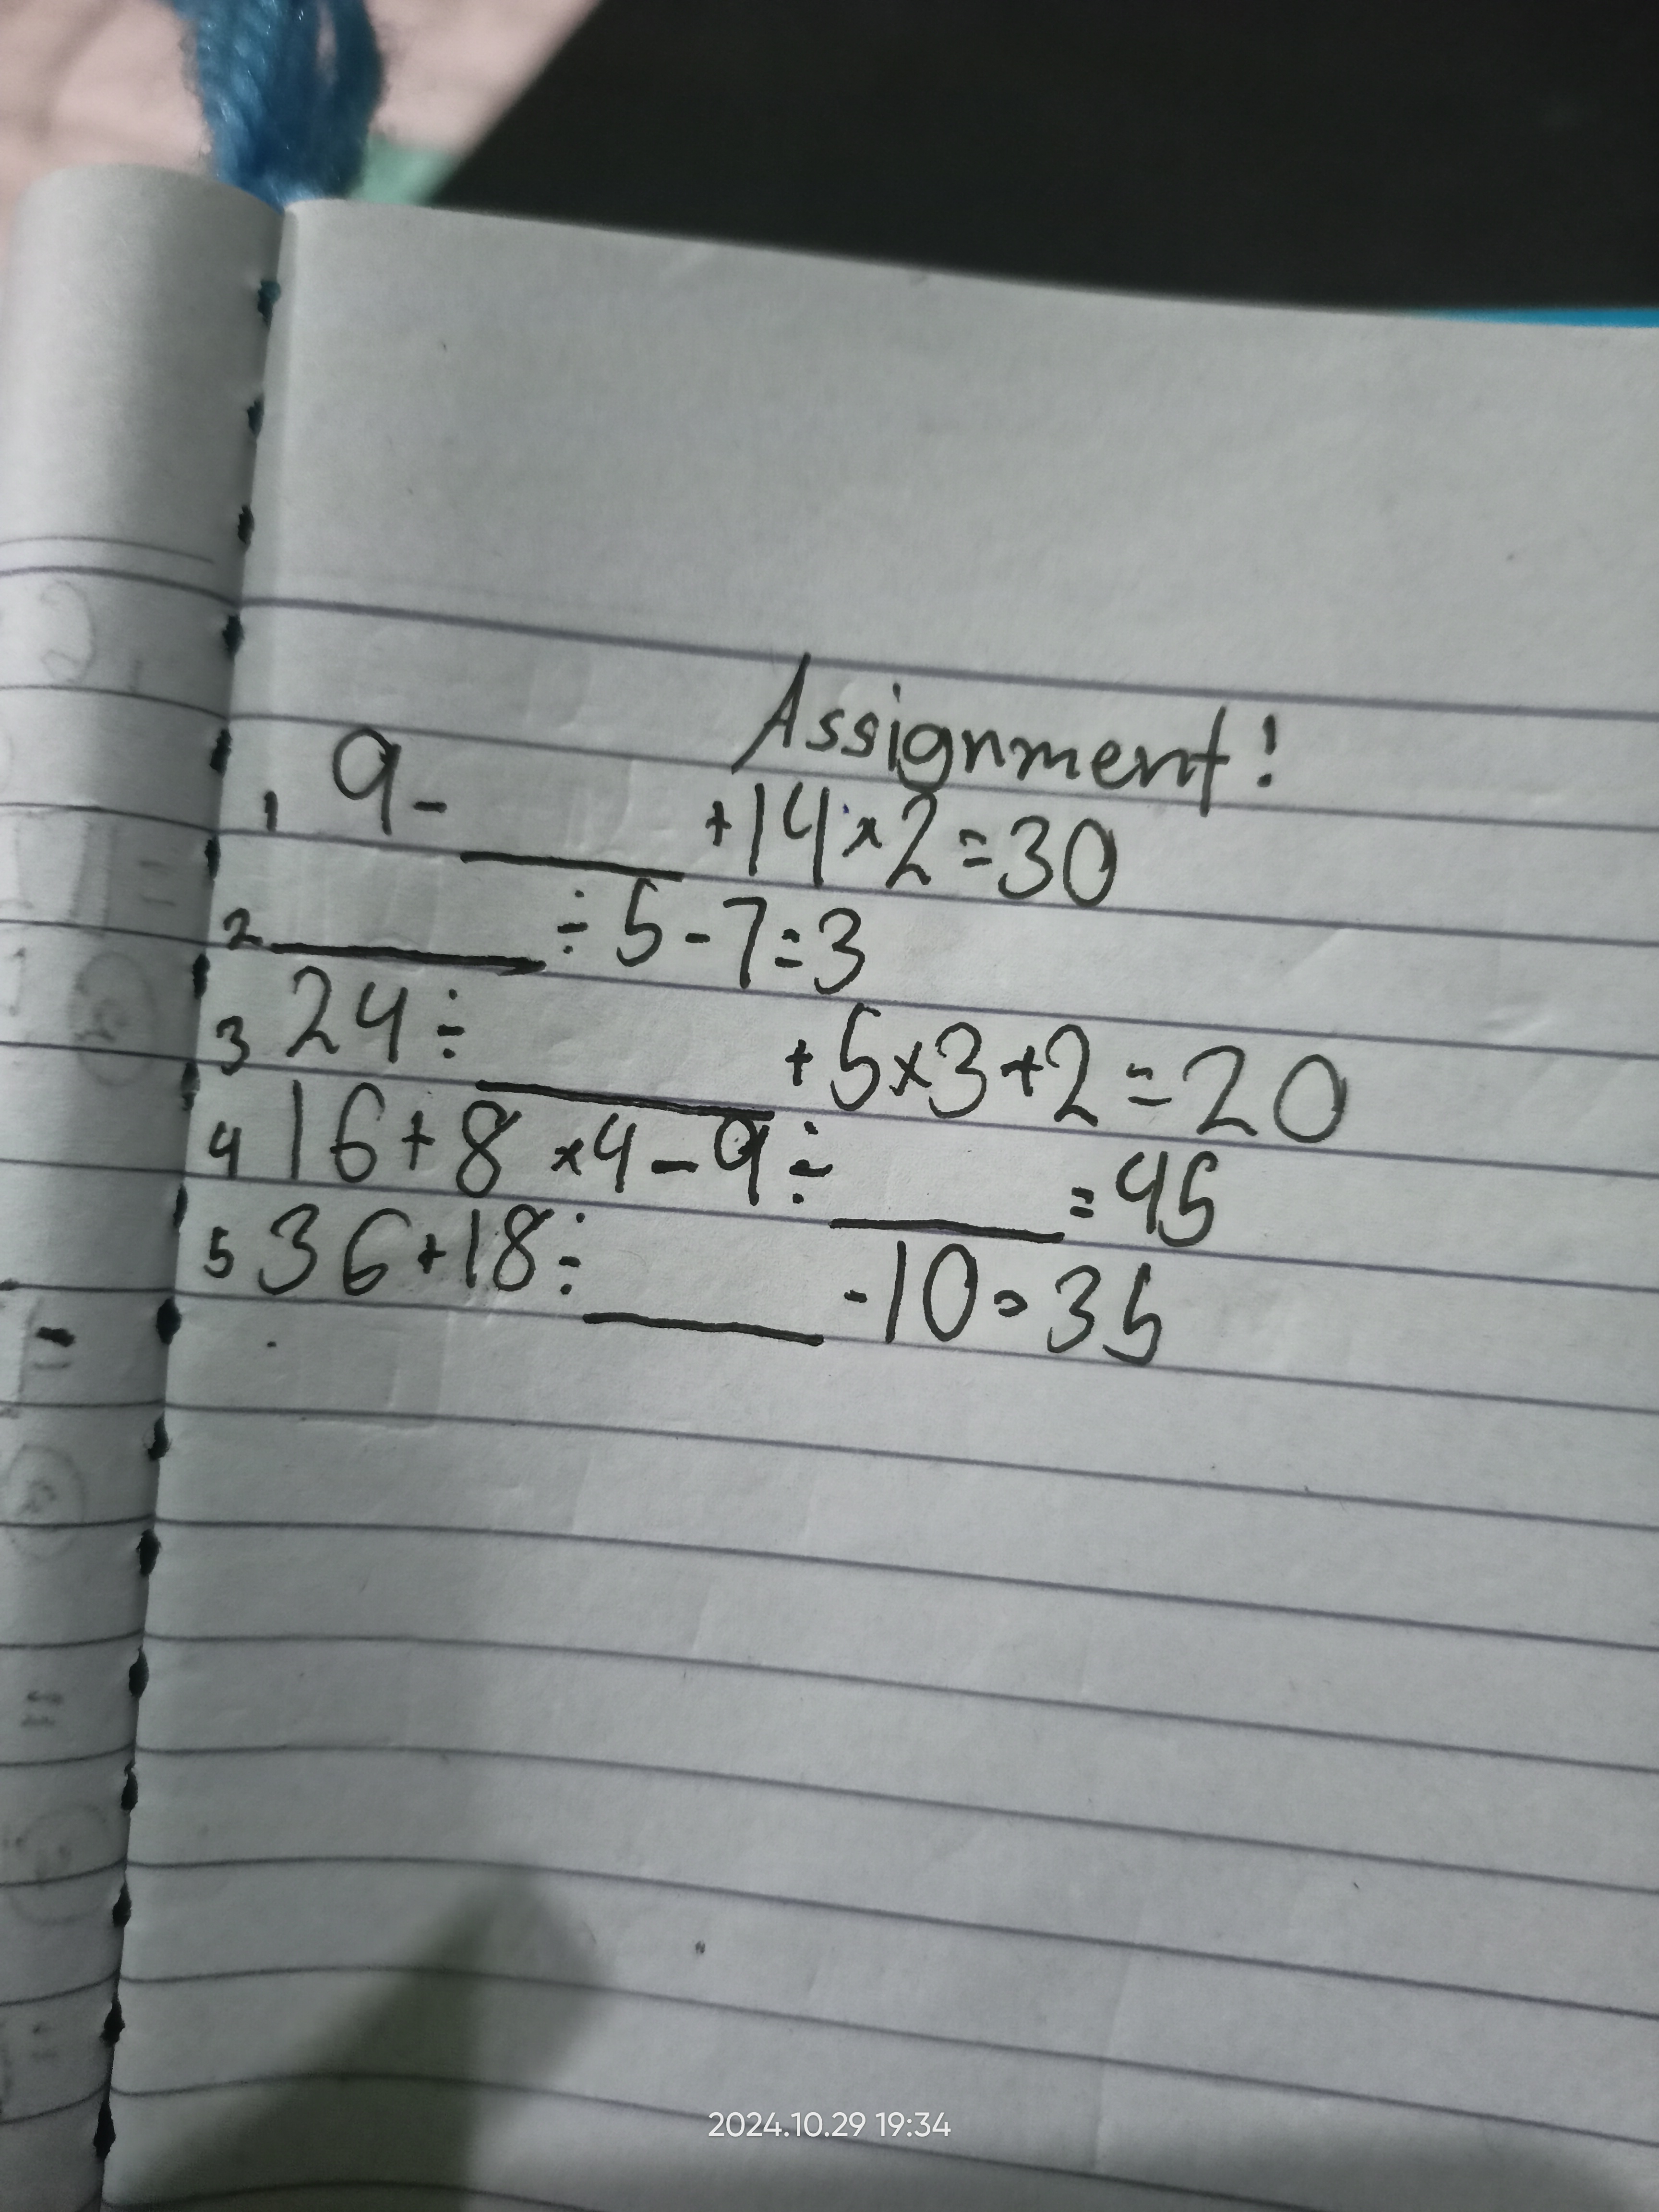 Assignment!
1 9 - ____ +14×2=30
2 ____ ÷ 5-7=3
3 24÷ ____ +5×3+2=20
4 16+8×4-9÷ ____ =45
5 36+18÷ ____ -10=35
2024.10.29 19:34